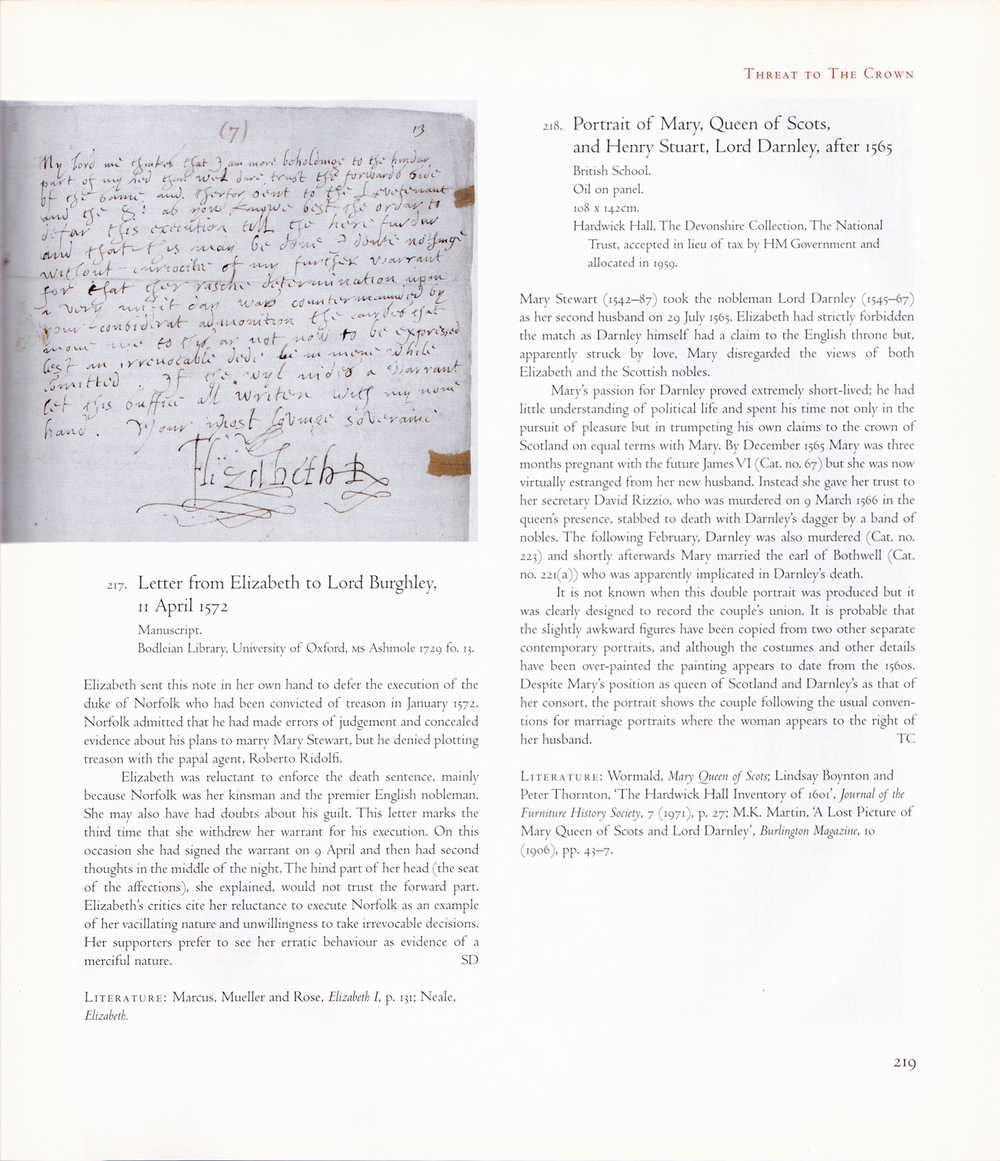 THREAT TO THE CROWN
(7) 13
My lord me thinkes that I am more beholdinge to the hindar
part of my hed than wel dare trust the forwards side
of the same and therfor sent to the Levetenant
and the S: as you knowe best the ordar to
defar this execution till the here furdar
and that this may be done I doute nothinge
without curiocitie of my further warrant
for that ther rasche determination upon
a very unfit day was countermaunded by
your considerat admonition the causes that
move me to this ar not now to be expressed
lest an irrevocable dede be in mene while
comitted. If the wyl nides a Warrant
let this suffice all writen with my none
hand. Your most lovinge soveraine
Elizabeth R
217. Letter from Elizabeth to Lord Burghley,
11 April 1572
Manuscript.
Bodleian Library, University of Oxford, MS Ashmole 1729 fo. 13.
Elizabeth sent this note in her own hand to defer the execution of the
duke of Norfolk who had been convicted of treason in January 1572.
Norfolk admitted that he had made errors of judgement and concealed
evidence about his plans to marry Mary Stewart, but he denied plotting
treason with the papal agent, Roberto Ridolfi.
Elizabeth was reluctant to enforce the death sentence, mainly
because Norfolk was her kinsman and the premier English nobleman.
She may also have had doubts about his guilt. This letter marks the
third time that she withdrew her warrant for his execution. On this
occasion she had signed the warrant on 9 April and then had second
thoughts in the middle of the night. The hind part of her head (the seat
of the affections), she explained, would not trust the forward part.
Elizabeth's critics cite her reluctance to execute Norfolk as an example
of her vacillating nature and unwillingness to take irrevocable decisions.
Her supporters prefer to see her erratic behaviour as evidence of a
merciful nature. SD
LITERATURE: Marcus, Mueller and Rose, Elizabeth I, p. 131; Neale,
Elizabeth.
218. Portrait of Mary, Queen of Scots,
and Henry Stuart, Lord Darnley, after 1565
British School.
Oil on panel.
108 x 142cm.
Hardwick Hall, The Devonshire Collection, The National
Trust, accepted in lieu of tax by HM Government and
allocated in 1959.
Mary Stewart (1542–87) took the nobleman Lord Darnley (1545–67)
as her second husband on 29 July 1565. Elizabeth had strictly forbidden
the match as Darnley himself had a claim to the English throne but,
apparently struck by love, Mary disregarded the views of both
Elizabeth and the Scottish nobles.
Mary's passion for Darnley proved extremely short-lived; he had
little understanding of political life and spent his time not only in the
pursuit of pleasure but in trumpeting his own claims to the crown of
Scotland on equal terms with Mary. By December 1565 Mary was three
months pregnant with the future James VI (Cat. no. 67) but she was now
virtually estranged from her new husband. Instead she gave her trust to
her secretary David Rizzio, who was murdered on 9 March 1566 in the
queen's presence, stabbed to death with Darnley's dagger by a band of
nobles. The following February, Darnley was also murdered (Cat. no.
223) and shortly afterwards Mary married the earl of Bothwell (Cat.
no. 221(a)) who was apparently implicated in Darnley's death.
It is not known when this double portrait was produced but it
was clearly designed to record the couple's union. It is probable that
the slightly awkward figures have been copied from two other separate
contemporary portraits, and although the costumes and other details
have been over-painted the painting appears to date from the 1560s.
Despite Mary's position as queen of Scotland and Darnley's as that of
her consort, the portrait shows the couple following the usual conven-
tions for marriage portraits where the woman appears to the right of
her husband. TC
LITERATURE: Wormald, Mary Queen of Scots; Lindsay Boynton and
Peter Thornton, 'The Hardwick Hall Inventory of 1601', Journal of the
Furniture History Society, 7 (1971), p. 27; M.K. Martin, 'A Lost Picture of
Mary Queen of Scots and Lord Darnley', Burlington Magazine, 10
(1906), pp. 43–7.
219